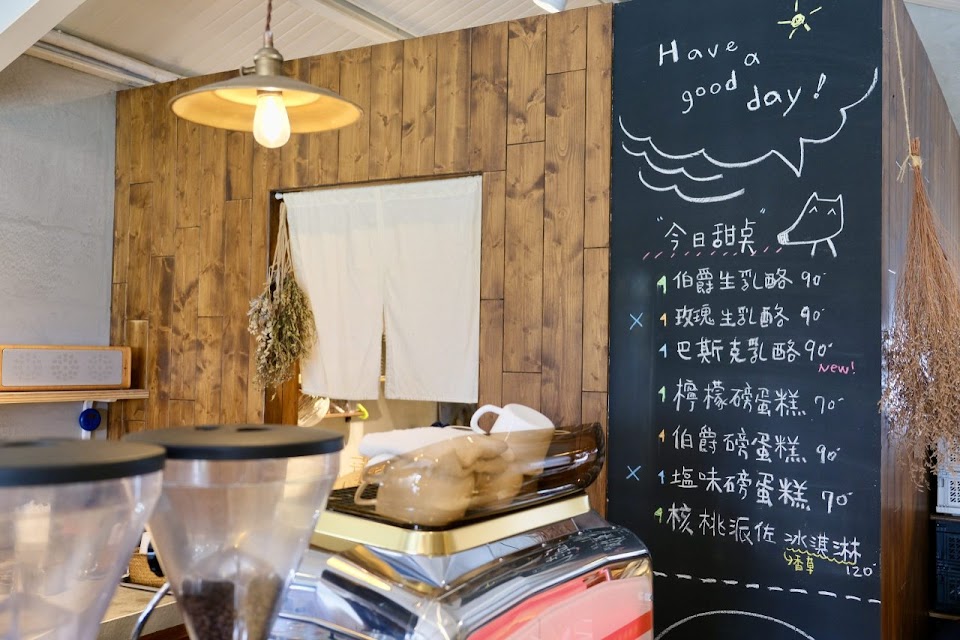 Have a
good
day!
"今日甜桌"
伯爵生乳酪 90
玫瑰生乳酪 90
巴斯克乳酪 90
New!
檸檬磅蛋糕 70
伯爵磅蛋糕 90
塩味磅蛋糕 70
核桃派佐冰淇淋
香草 120